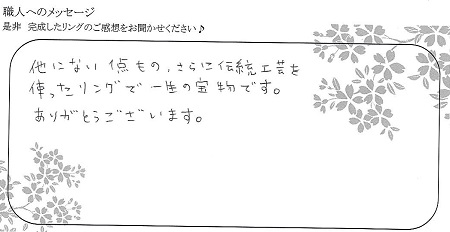 職人へのメッセージ
是非 完成したリングのご感想をお聞かせください♪
他にない1点もの、さらに伝統工芸を
使ったリングで一生の宝物です。
ありがとうございます。